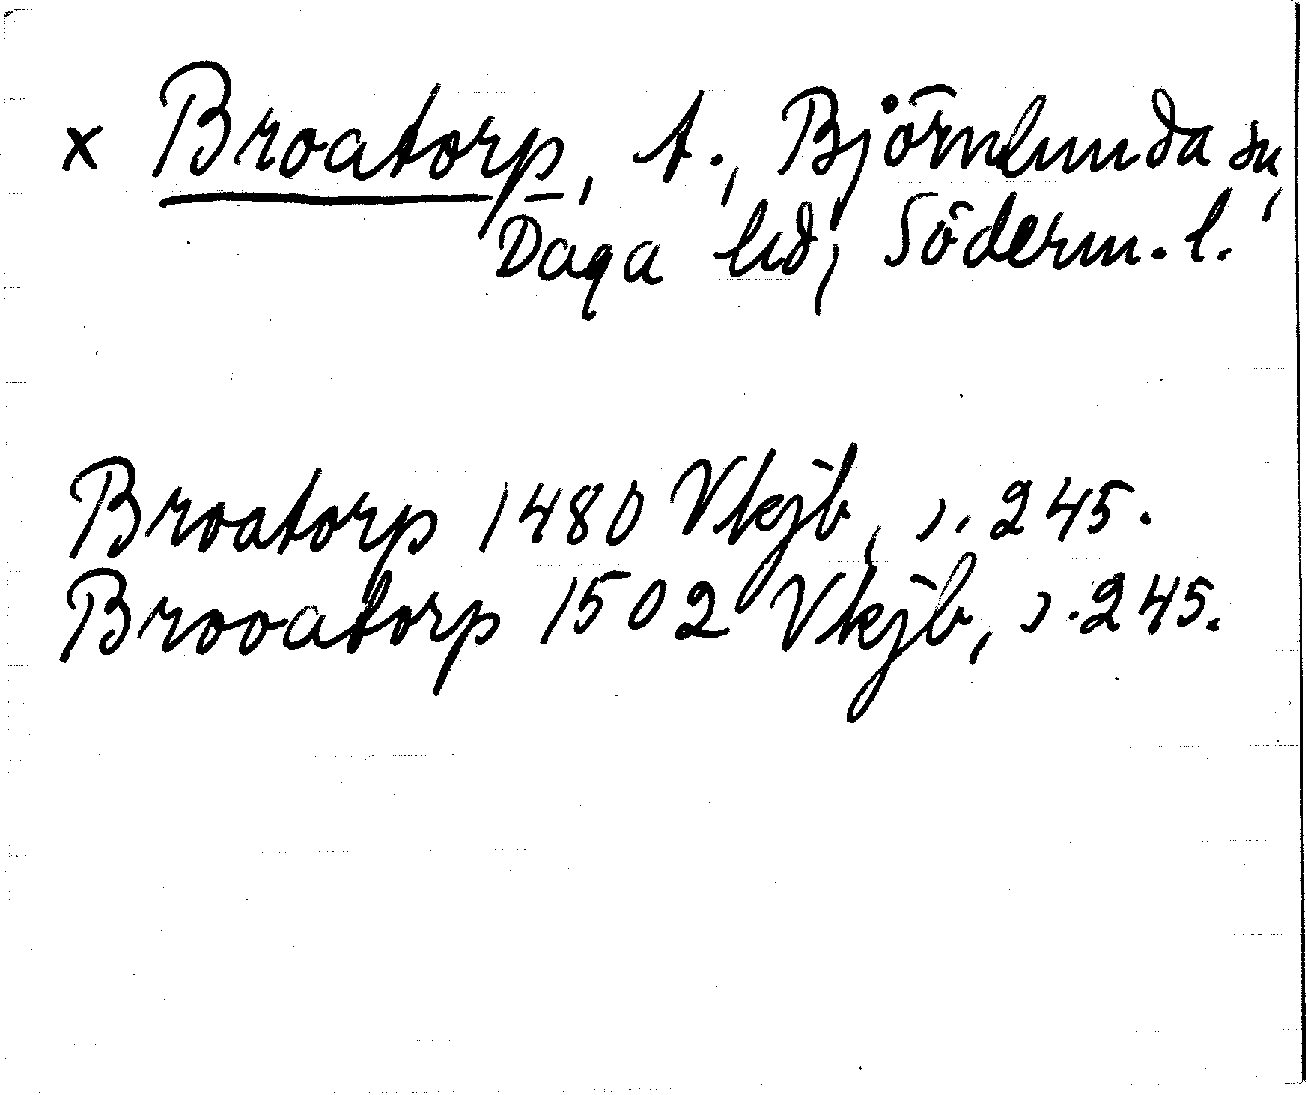 x Broatorp, t., Björnlunda sn,
Daga hd, Söderm. l.
Broatorp 1480 Vkjb, s. 245.
Brooatorp 1502 Vkjb, s. 245.